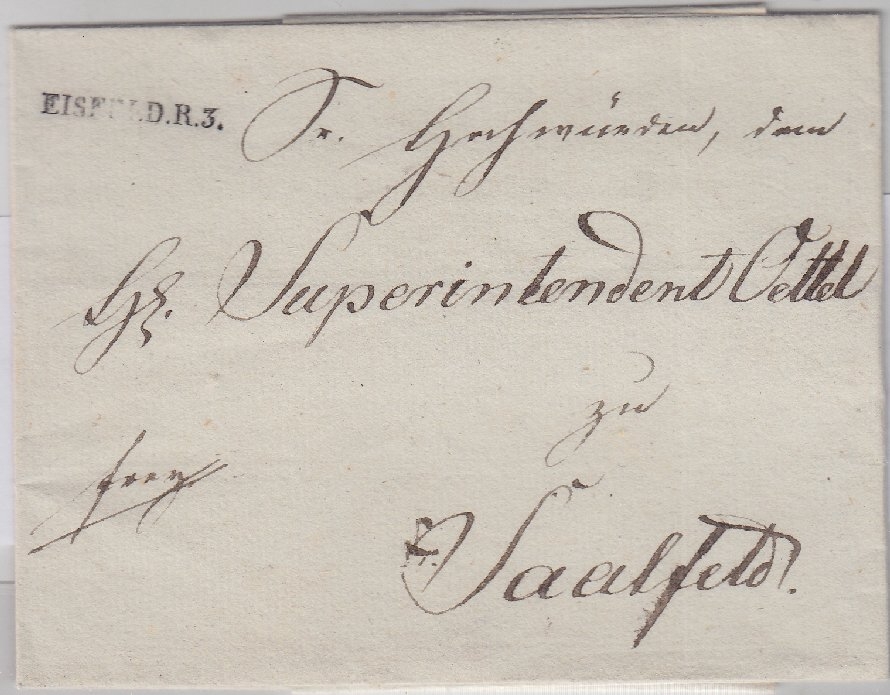 EISFELD.R.3.
Sr. Hochwürden, dem
H. Superintendent Oettel
zu
frey
Saalfeld.